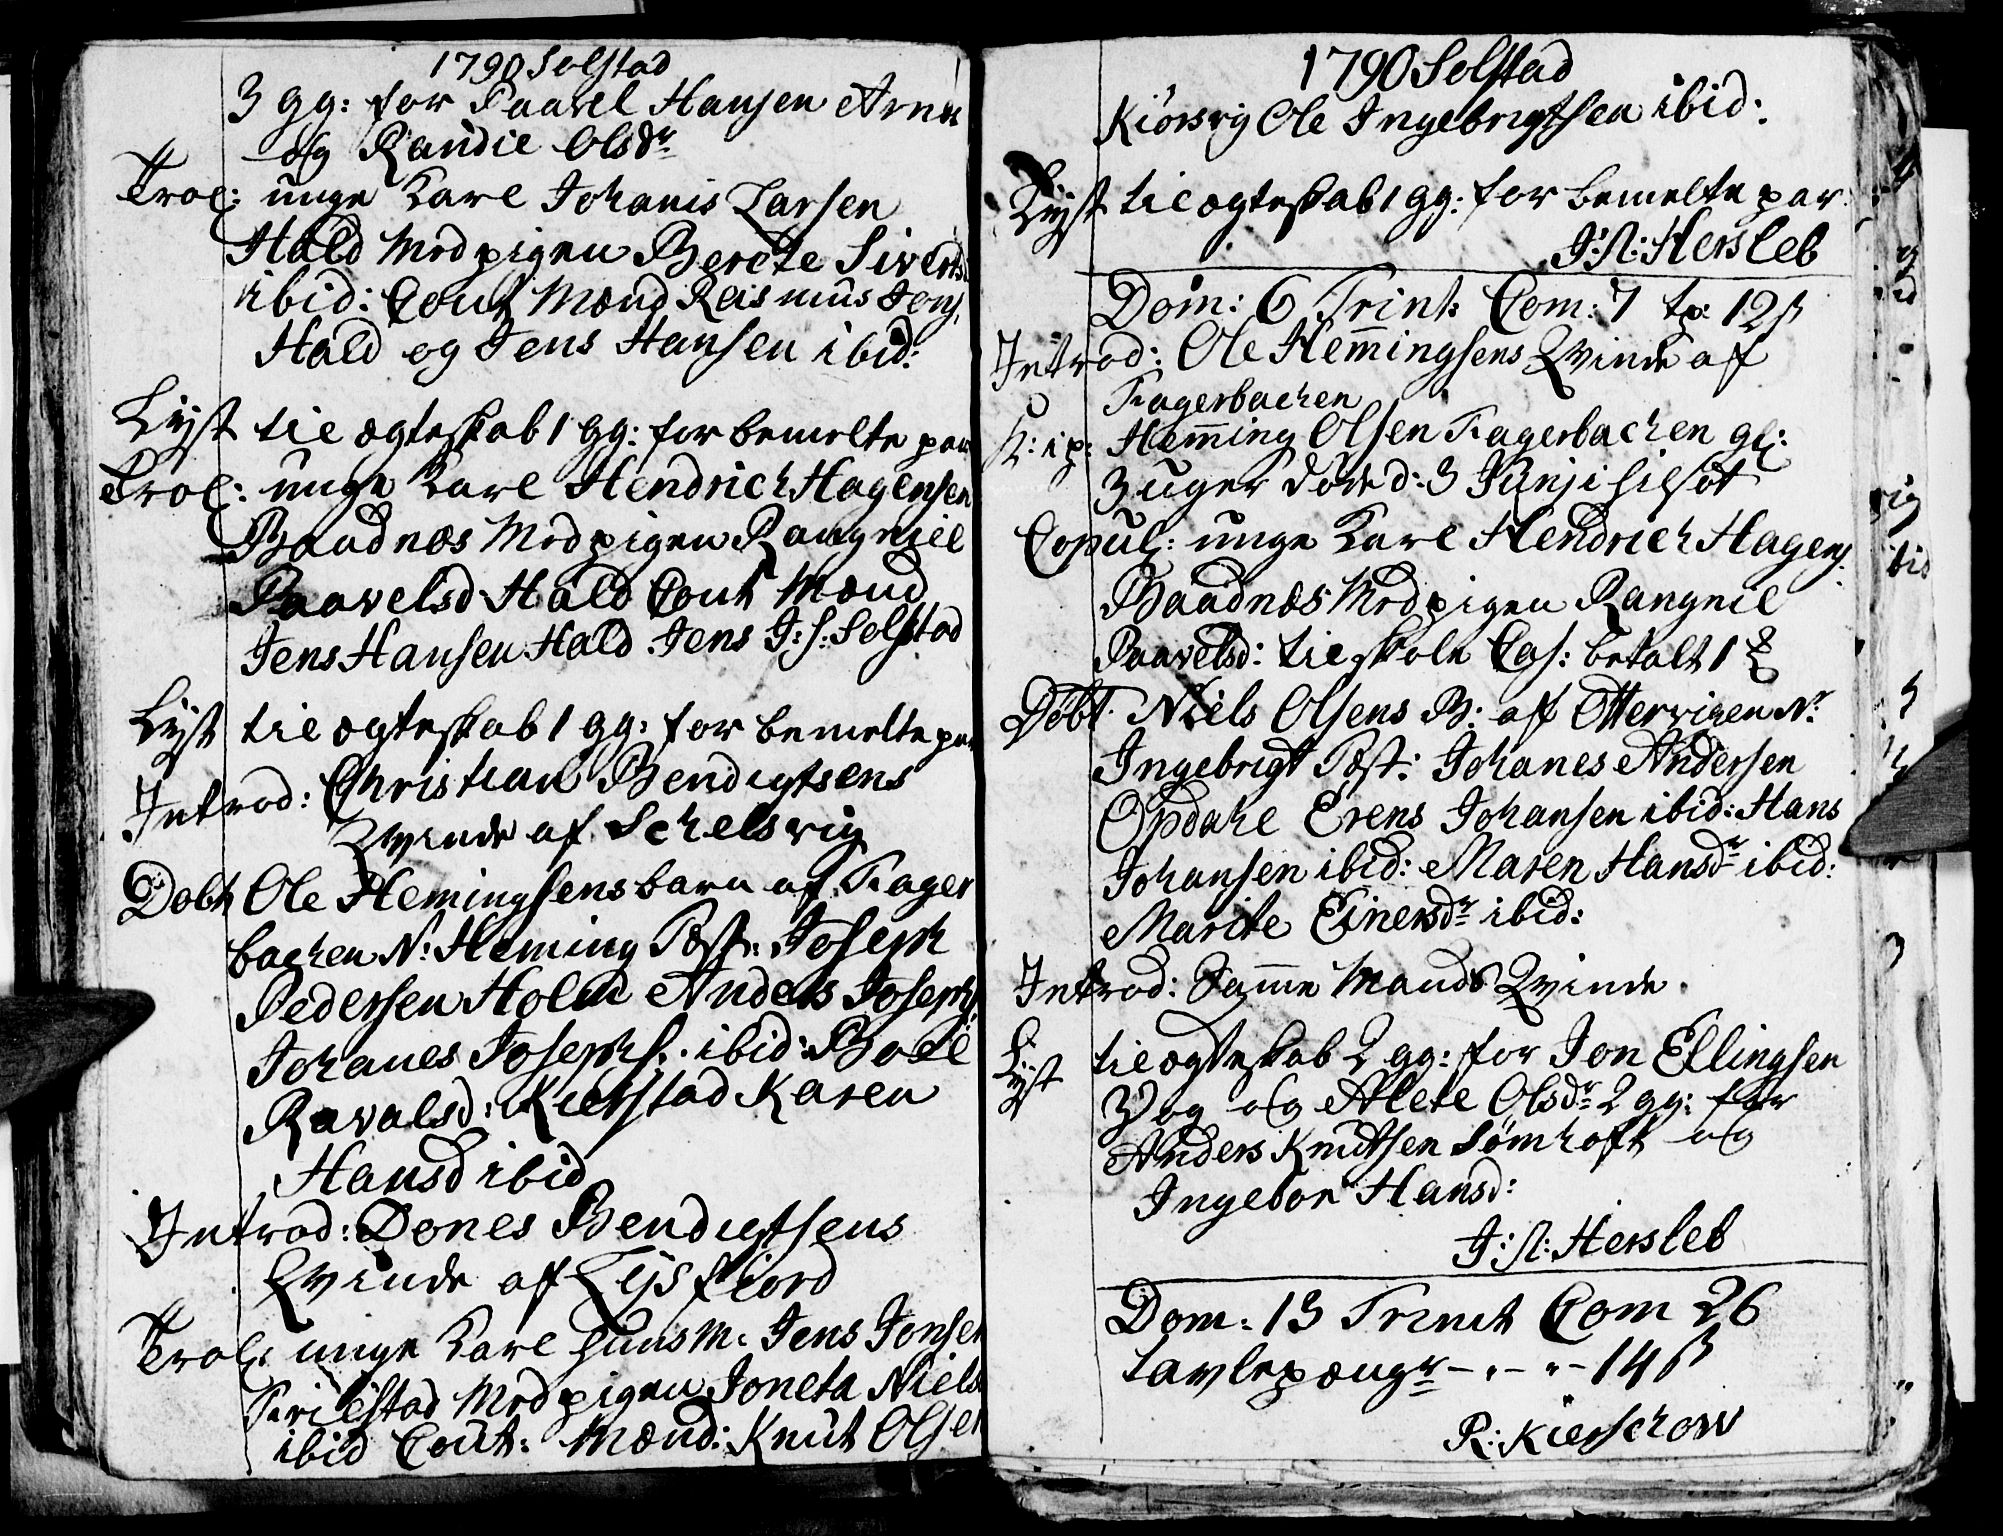 1790 Solstad
3 gg: for Paavel Hansen Arnøe
og Randie Olsdr
Trol: unge Karl Johanis Larsen
Hald Med pigen Berete Sivertsd
ibid: Cout Mænd Rasmus Jens.
Hald og Jens Hansen ibid:
Lyst til ægteskab 1 gg: for bemelte par
Trol: unge Karl Hendrich Hagensen
Baadnæs Med pigen Rangniel
Paavelsd Hald Cout Mænd
Jens Hansen Hald Jens J: S: Solstad
Lyst til ægteskab 1 gg: for bemelte par
Introd: Christian Bendigtsens
Qvinde af Schelsvig
Döbt Ole Hemingsens barn af Fager
bachen N: Heming Test: Joseph
Pedersen Holm Anders Josephs.
Johanes Josephs. ibid: Boel
Ravalsd: Kierstad Karen
Hansd ibid
Introd: Dones Bendigtsens
Qvinde af Lysfiord
Trol: unge Karl huusm. Jens Jonsen
Med pigen Joneta Niels
ibid Cout: Mænd: Knut Olsen
1790 Solstad
Kiörsvig Ole Ingebrigtsen ibid:
Lyst til ægteskab 1 gg: for bemelte par:
J: N: Hersleb
Dom: 6 Trint: Com: 7 tp: 12 ß
Introd: Ole Hem̅ingsens Qvinde af
Fagerbachen
H: i p: Hem̅ing Olsen Fagerbachen gl:
3 uger döde d: 3 Junji
Copul: unge Karl Hendrich Hagens.
Baadnæs Med pigen Rangnil
Paavelsd: til skole Cas: betalt 1 ß
Döbt Niels Olsens B: af Ottervigen N:
Ingebrigt Test: Johanes Andersen
Opdahl Erens Johansen ibid: Hans
Johansen ibid: Maren Hansdr ibid:
Marite Einersdr ibid:
Introd: Sam̅e Mands Qvinde.
Lyst til ægteskab 2 gg: for Jon Ellingsen
Vog og Alete Olsdr 2 gg: for
Anders Knutsen Sømhoft og
Ingebor Hansd:
J: N: Hersleb
Dom: 13 Trinit Com 26
tavlepængr - " - " - 14 ß
R: Kierschow